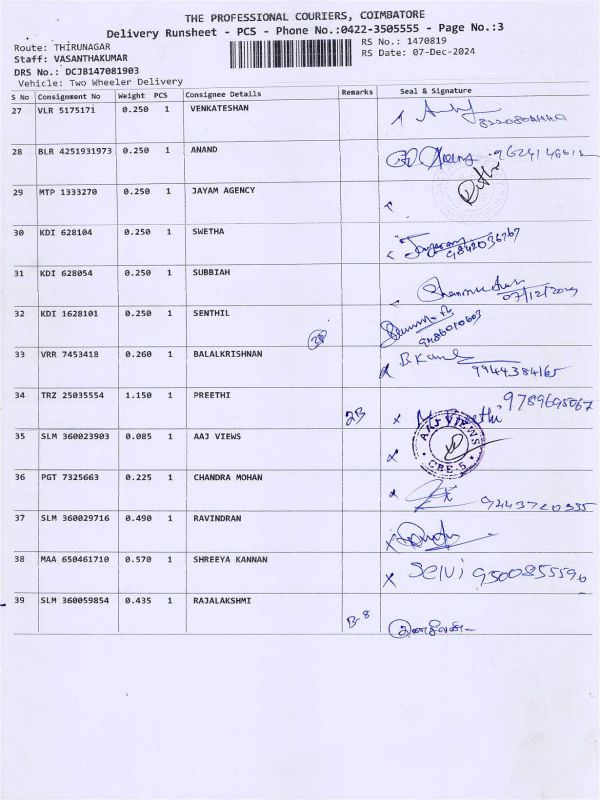 THE PROFESSIONAL COURIERS, COIMBATORE
Delivery Runsheet - PCS - Phone No.:0422-3505555 - Page No.:3
Route: THIRUNAGAR
RS No.: 1470819
Staff: VASANTHAKUMAR
RS Date: 07-Dec-2024
DRS No.: DCJB147081903
Vehicle: Two Wheeler Delivery
S No Consignment No Weight PCS Consignee Details Remarks Seal & Signature
27 VLR 5175171 0.250 1 VENKATESHAN
28 BLR 4251931973 0.250 1 ANAND
29 MTP 1333270 0.250 1 JAYAM AGENCY
30 KDI 628104 0.250 1 SWETHA
9842036767
31 KDI 628054 0.250 1 SUBBIAH
07/12/2024
32 KDI 1628101 0.250 1 SENTHIL
9486010603
33 VRR 7453418 0.260 1 BALALKRISHNAN
9944384165
34 TRZ 25035554 1.150 1 PREETHI 2B M. Preethi 9789695067
35 SLM 360023903 0.085 1 AAJ VIEWS AAJ VIEWS CBE-5
36 PGT 7325663 0.225 1 CHANDRA MOHAN 9443720335
37 SLM 360029716 0.490 1 RAVINDRAN
38 MAA 650461710 0.570 1 SHREEYA KANNAN Selvi 9500855596
39 SLM 360059854 0.435 1 RAJALAKSHMI B-8